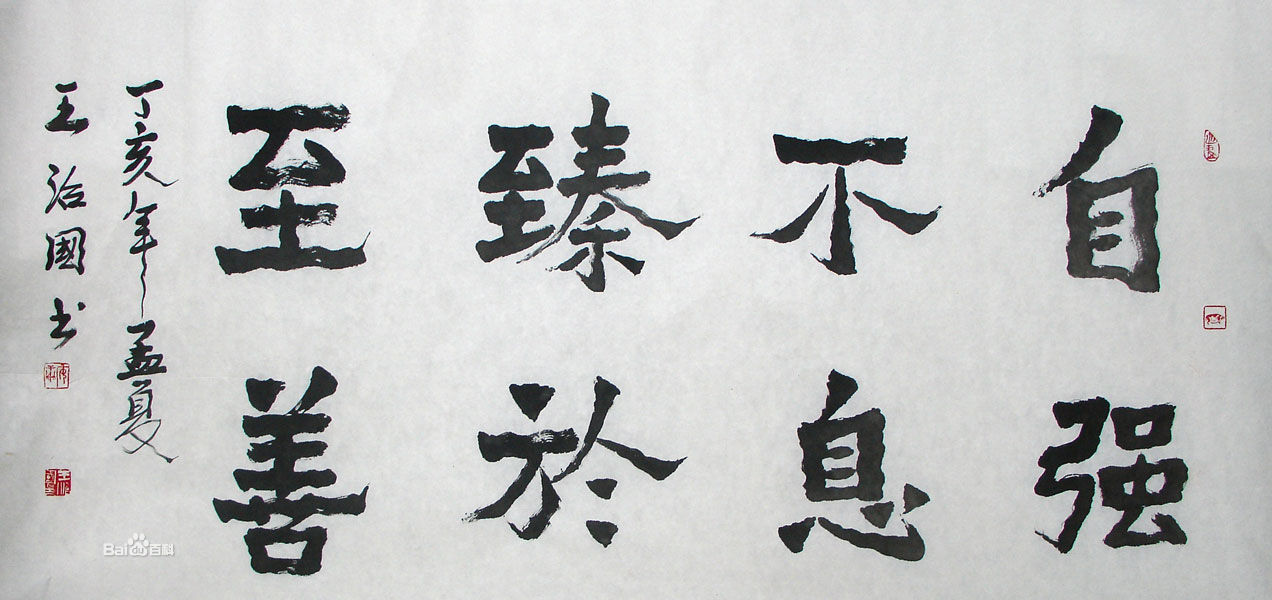 自强
不息
臻於
至善
丁亥年孟夏
王治國书
Bai百科